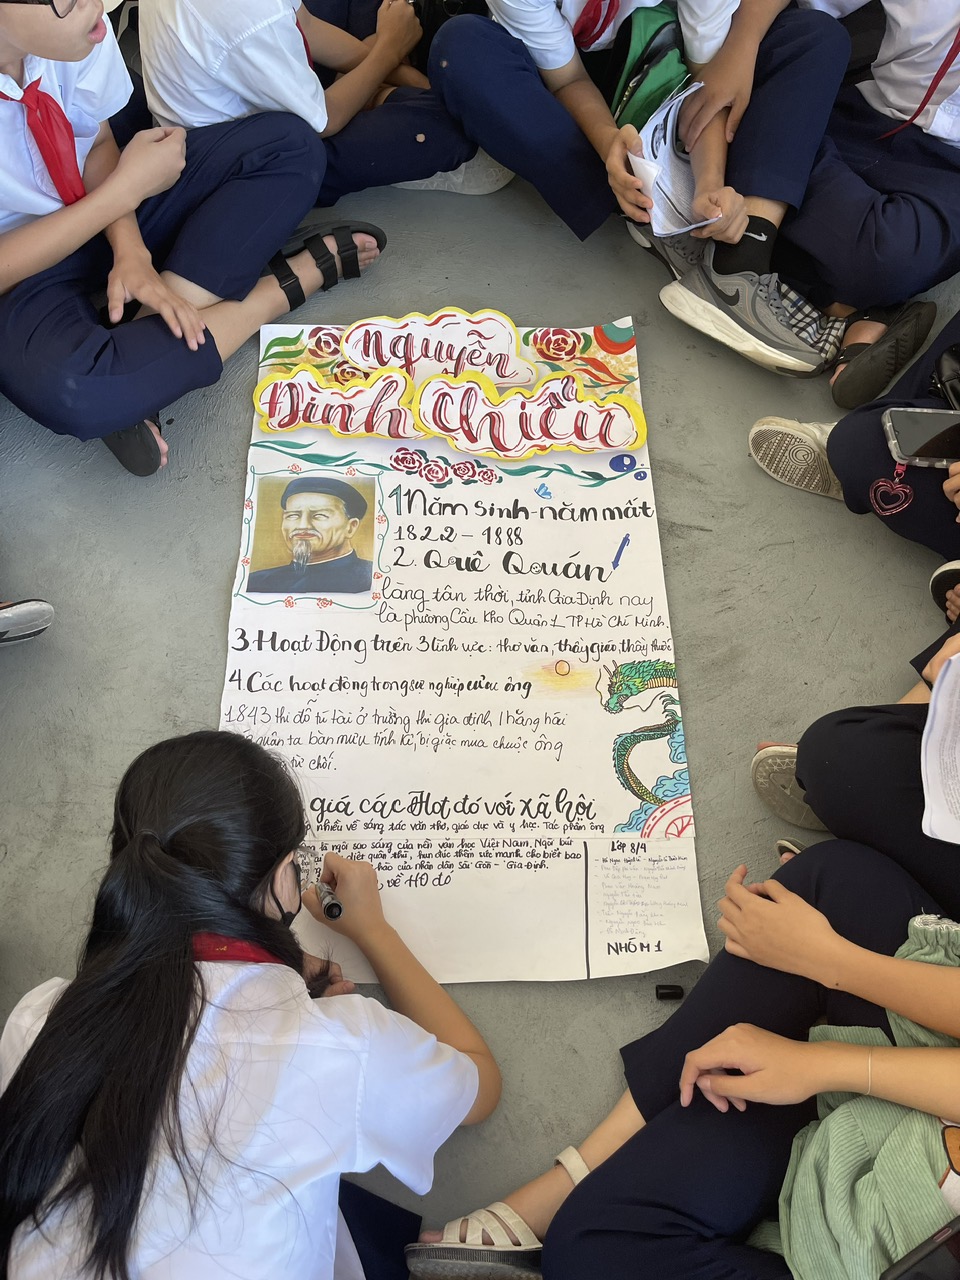 Nguyễn
Đình Chiểu
1 Năm sinh - năm mất
1822 - 1888
2. Quê Quán
làng tân thời, tỉnh Gia Định nay
là phường Cầu Kho Quận 1 TP Hồ Chí Minh.
3. Hoạt Động trên 3 lĩnh vực: thơ văn, thầy giáo, thầy thuốc
4. Các hoạt động trong sự nghiệp của ông
1843 thi đỗ tú tài ở trường thi gia định, 1 hăng hái
quân ta bàn mưu tính kế, bị giặc mua chuộc ông
từ chối.
giá các Hot đó với xã hội
nhiều về sáng tác văn thơ, giáo dục và y học. Tác phẩm ông
là ngôi sao sáng của nền văn học Việt Nam. Ngòi bút
diệt quân thù, hun đúc thêm sức mạnh cho biết bao
hào của nhân dân Sài Gòn - Gia Định.
về HĐ đó
Lớp 8/4
NHÓM 1